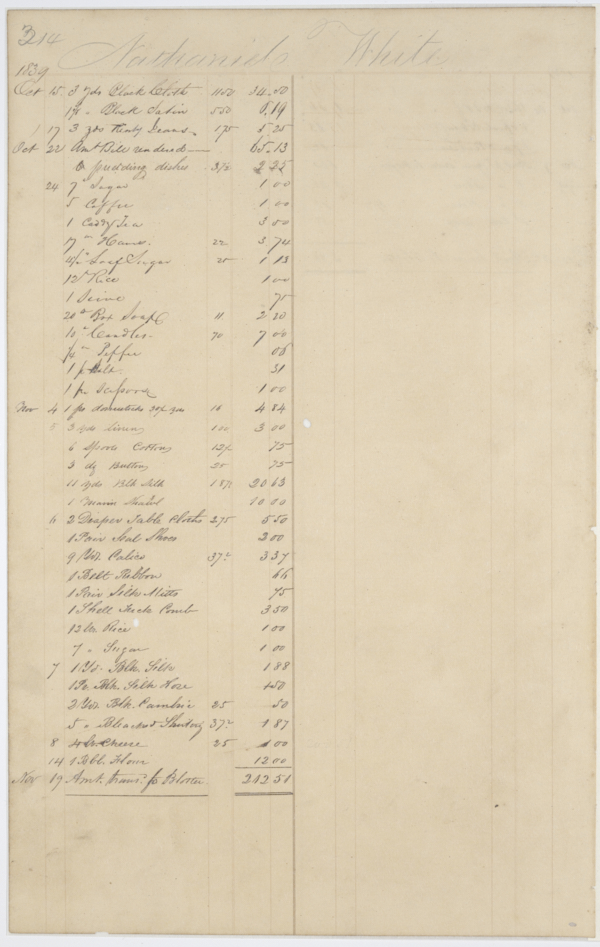 314
Nathaniel White
1839
Oct 15 3 yds Black Cloth 1150 34.50
" Black Satin 550 6.19
17 3 yds Kenty Jeans 175 5.25
Oct 22 Amt Bill rendered 65.13
6 pudding dishes 37½ 2 25
24 7 " Sugar 1 00
5 Coffee 1 00
1 Caddy Tea 3 00
17 " Hams 22 3 74
4½ " Loaf Sugar 25 1 13
12 " Rice 1 00
1 75
20 " Box Soap 11 2 20
10 " Candles 70 7 00
" Pepper 06
1 31
1 pr 1 00
Nov 4 1 ps domestick yds 16 4 84
5 3 yds Linen 100 3 00
6 Spools Cotton 12½ 75
3 dz Buttons 25 75
11 yds Blk Silk 187½ 20 63
1 10 00
6 2 Draper Table Cloths 275 5 50
1 Pair Seal Shoes 2 00
9 Yds Calico 37½ 3 37
1 Belt Ribbon 66
1 Pair Silk Mitts 75
1 Shell Tuck Comb 3 50
12 lbs Rice 1 00
7 " Sugar 1 00
7 1 Yd. Blk. Silk 1 88
1 Pr Blk. Silk Hose 4 50
2 Yds Blk. Cambric 25 50
5 " Bleached Shirting 37½ 1 87
8 4 lbs Cheese 25 1 00
14 1 Bbl. Flour 12 00
Nov 19 Amt. trans. to Blotter 212 51